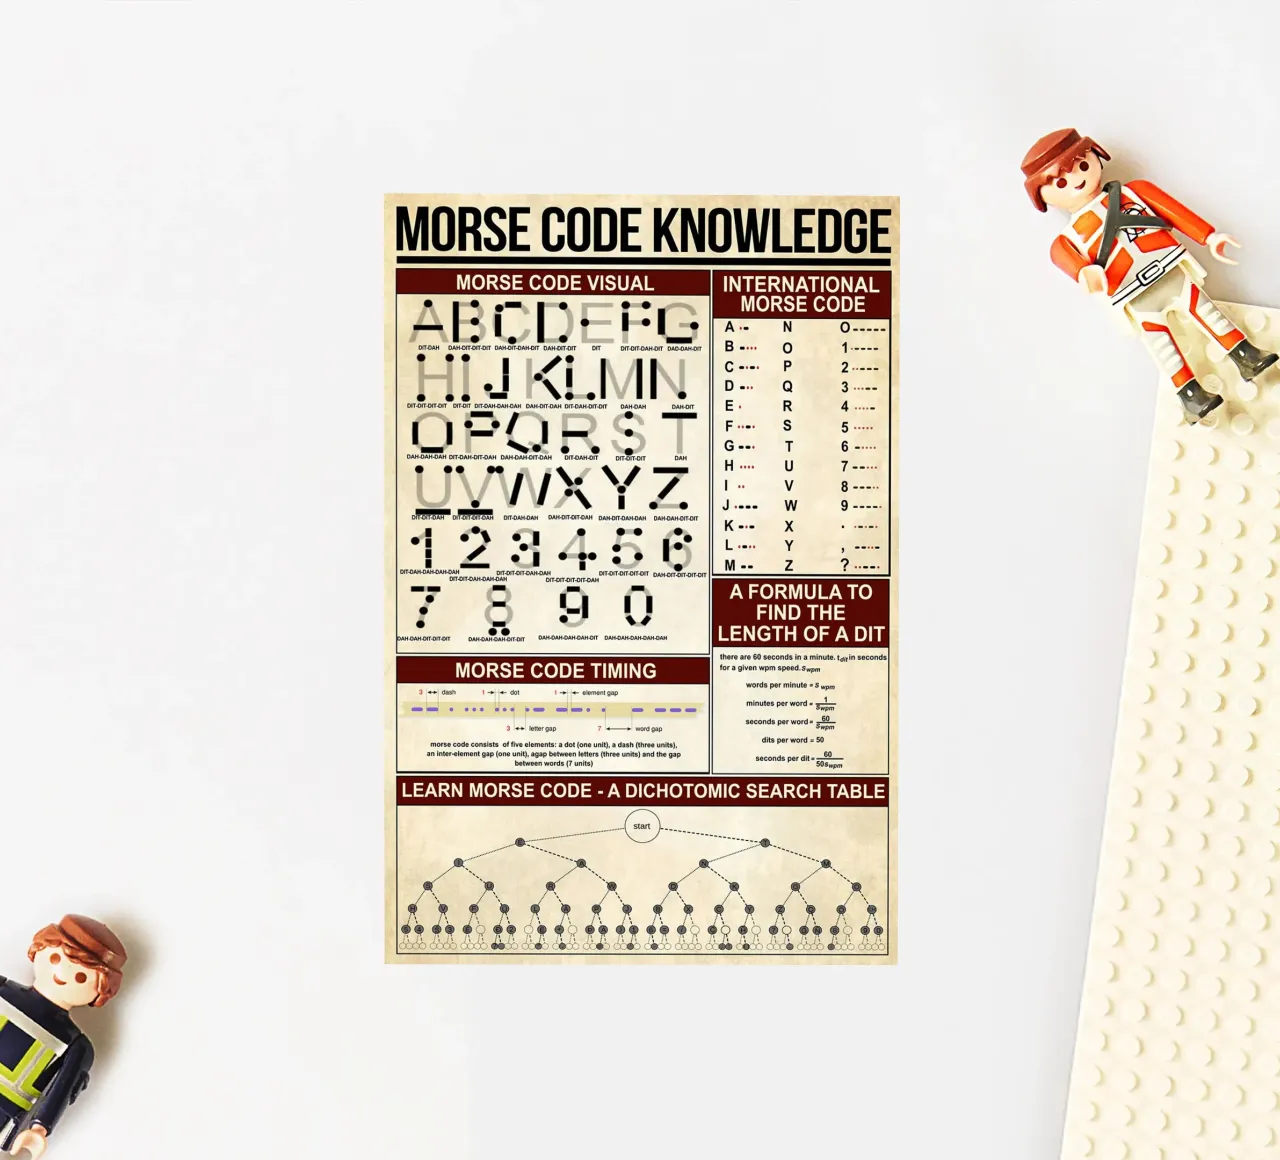 MORSE CODE KNOWLEDGE
MORSE CODE VISUAL
A B C D E F G
DIT-DAH DAH-DIT-DIT-DIT DAH-DIT-DAH-DIT DAH-DIT-DIT DIT DIT-DIT-DAH-DIT DAD-DAH-DIT
H I J K L M N
DIT-DIT-DIT-DIT DIT-DIT DIT-DAH-DAH-DAH DAH-DIT-DAH DIT-DAH-DIT-DIT DAH-DAH DAH-DIT
O P Q R S T
DAH-DAH-DAH DIT-DAH-DAH-DIT DAH-DAH-DIT-DAH DIT-DAH-DIT DIT-DIT-DIT DAH
U V W X Y Z
DIT-DIT-DAH DIT-DIT-DIT-DAH DIT-DAH-DAH DAH-DIT-DIT-DAH DAH-DIT-DAH-DAH DAH-DAH-DIT-DIT
1 2 3 4 5 6
DIT-DAH-DAH-DAH-DAH DIT-DIT-DAH-DAH-DAH DIT-DIT-DIT-DAH-DAH DIT-DIT-DIT-DIT-DAH DIT-DIT-DIT-DIT-DIT DAH-DIT-DIT-DIT-DIT
7 8 9 0
DAH-DAH-DIT-DIT-DIT DAH-DAH-DAH-DIT-DIT DAH-DAH-DAH-DAH-DIT DAH-DAH-DAH-DAH-DAH
INTERNATIONAL
MORSE CODE
A ·- N O -----
B -··· O 1 ·----
C -·-· P 2 ··---
D -·· Q 3 ···--
E · R 4 ····-
F ··-· S 5 ·····
G --· T 6 -····
H ···· U 7 --···
I ·· V 8 ---··
J ·--- W 9 ----·
K -·- X . ·-·-·-
L ·-·· Y , --··--
M -- Z ? ··--··
A FORMULA TO
FIND THE
LENGTH OF A DIT
there are 60 seconds in a minute. tdit in seconds
for a given wpm speed. swpm
words per minute = s wpm
minutes per word = 1/swpm
seconds per word = 60/swpm
dits per word = 50
seconds per dit = 60/50swpm
MORSE CODE TIMING
3 dash 1 dot 1 element gap
3 letter gap 7 word gap
morse code consists of five elements: a dot (one unit), a dash (three units),
an inter-element gap (one unit), agap between letters (three units) and the gap
between words (7 units)
LEARN MORSE CODE - A DICHOTOMIC SEARCH TABLE
start
E T